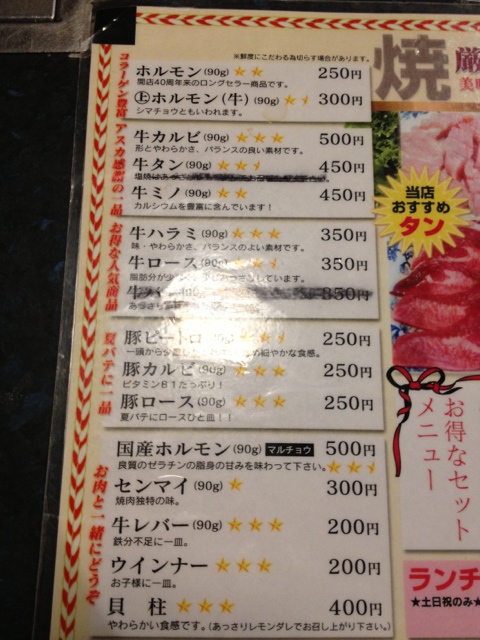 ※鮮度にこだわる為切らす場合があります。
ホルモン(90g)★★ 250円
開店40周年来のロングセラー商品です。
㊤ホルモン(牛)(90g) 300円
シマチョウともいわれます。
牛カルビ(90g)★★★ 500円
形とやわらかさ、バランスの良い素材です。
牛タン(90g) 450円
牛ミノ(90g)★★ 450円
カルシウムを豊富に含んでいます！
牛ハラミ(90g)★★★ 350円
味・やわらかさ、バランスのよい素材です。
牛ロース(90g) 350円
脂肪分が少
しています。
350円
あっさり
豚ピートロ(90g) 250円
一頭から少
細やかな食感。
豚カルビ(90g)★★★ 250円
ビタミンB1たっぷり！
豚ロース(90g)★★★ 250円
夏バテにロースひと皿！！
国産ホルモン(90g) マルチョウ 500円
良質のゼラチンの脂身の甘みを味わって下さい。
センマイ(90g)★ 300円
焼肉独特の味。
牛レバー(90g)★★★ 200円
鉄分不足に一皿。
ウインナー★★★ 200円
お子様に一皿。
貝柱★★★ 400円
やわらかい食感です。(あっさりレモンダレでお召し上がり下さい。)
コラーゲン豊富、アスカ感謝の一品
お得な人気商品
夏バテに一品
お肉と一緒にどうぞ
焼
厳
美味
当店
おすすめ
タン
お得なセット
メニュー
ランチ
★土日祝のみ★